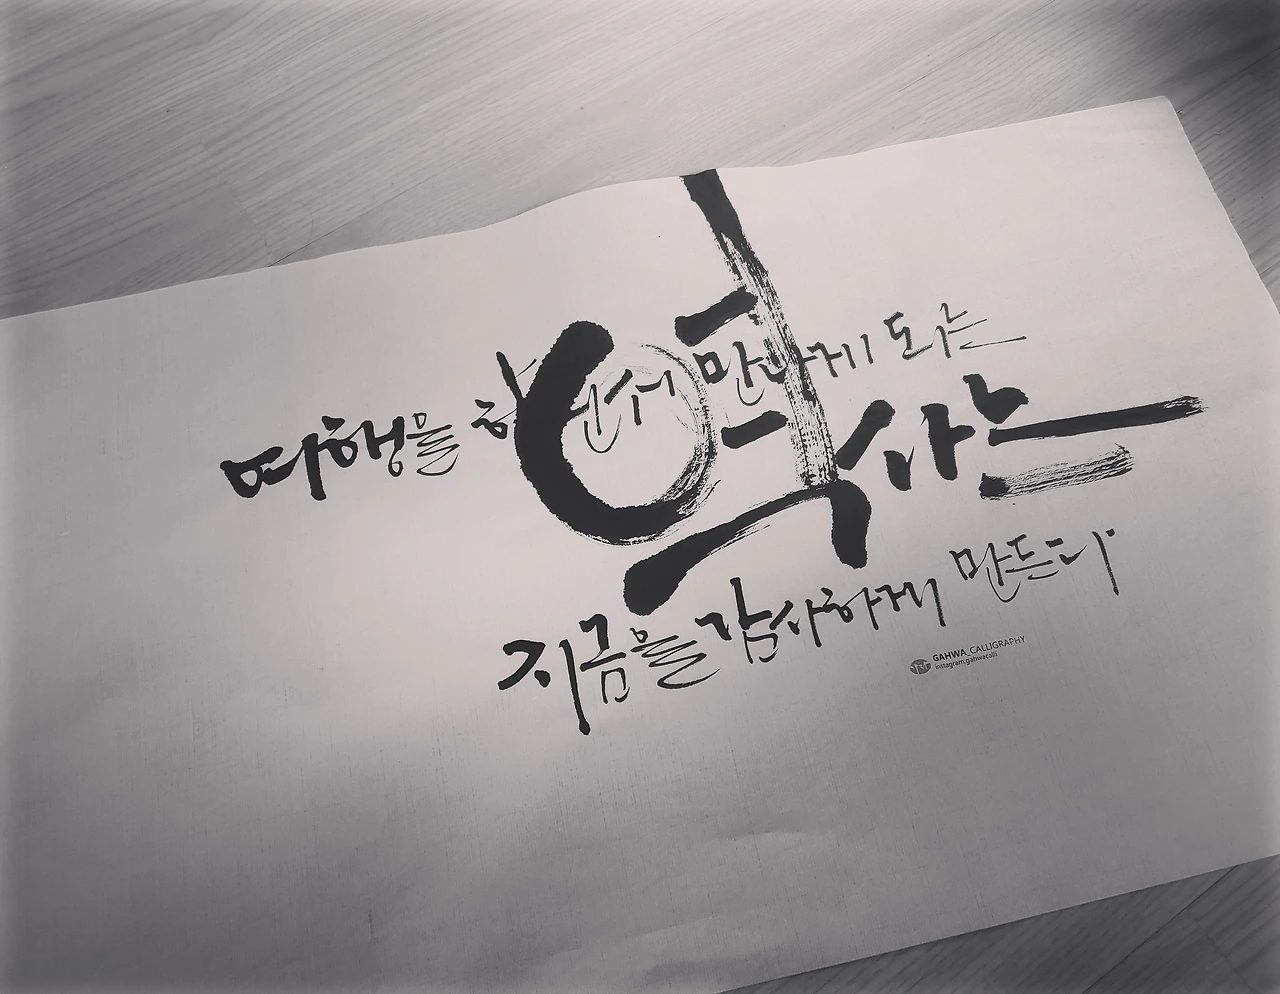 여행을 하면서 만나게 되는
역사는
지금을 감사하게 만든다
GAHWA_CALLIGRAPHY
instagram.gahwacalli